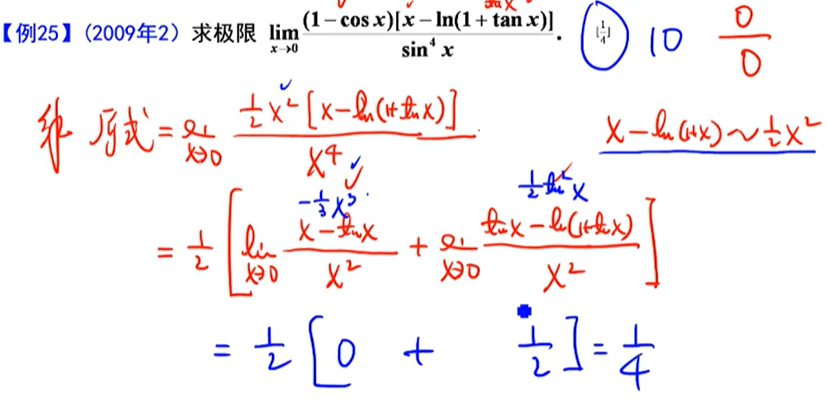 【例25】(2009年2) 求极限 lim x→0 (1−cos x)[x−ln(1+tan x)] / sin⁴ x . [1/4] 10 0/0
解 原式 = lim x→0 ½x²[x−ln(1+tan x)] / x⁴ x−ln(1+x)~½x²
−⅓x³ ½tan²x
= ½ [ lim x→0 (x−tan x)/x² + lim x→0 (tan x−ln(1+tan x))/x² ]
= ½ [ 0 + ½ ] = ¼